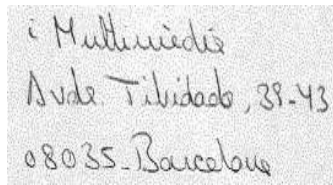 i Multimèdia
Avda. Tibidabo, 39-43
08035-Barcelona